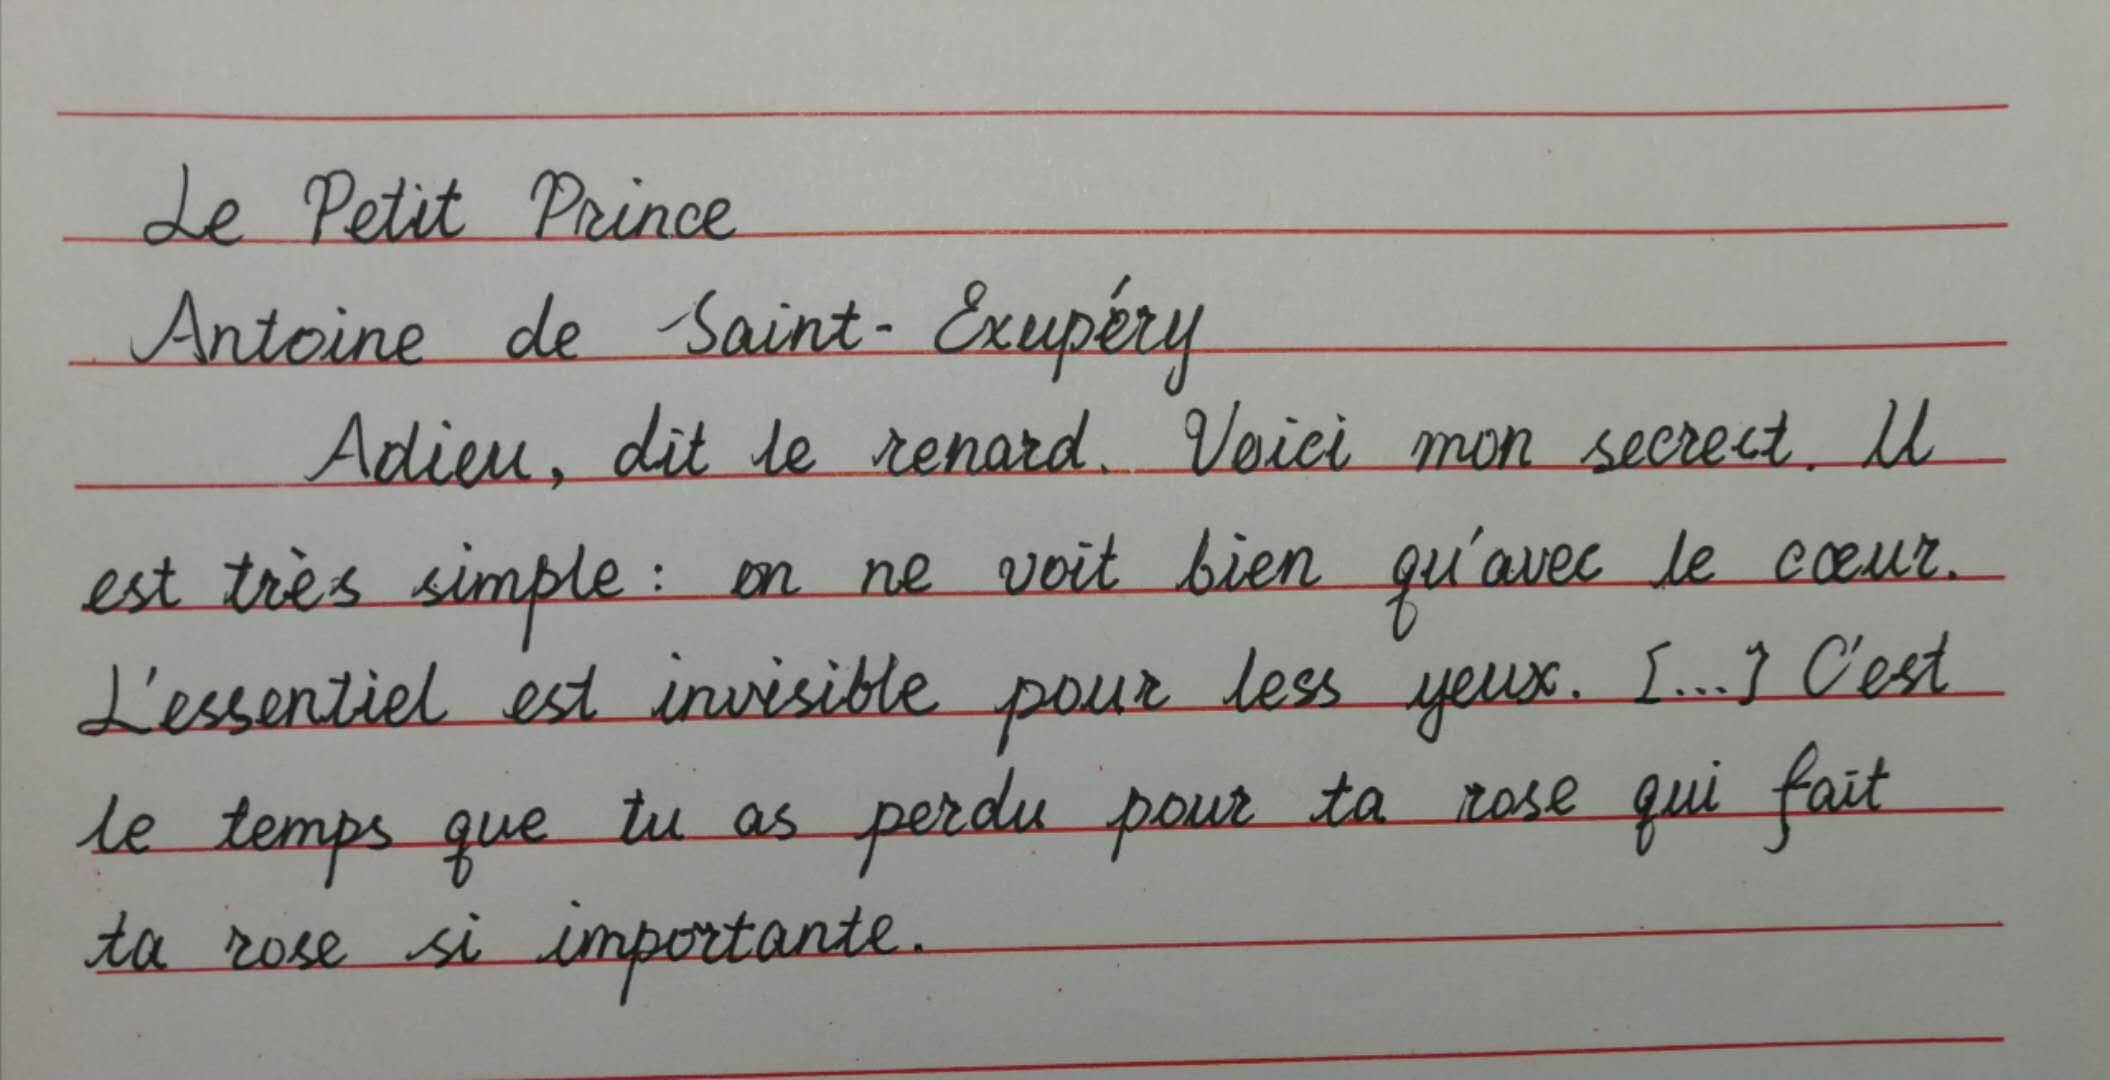 Le Petit Prince
Antoine de Saint-Exupéry
Adieu, dit le renard. Voici mon secrect. Il
est très simple: on ne voit bien qu'avec le cœur.
L'essentiel est invisible pour less yeux. [...] C'est
le temps que tu as perdu pour ta rose qui fait
ta rose si importante.